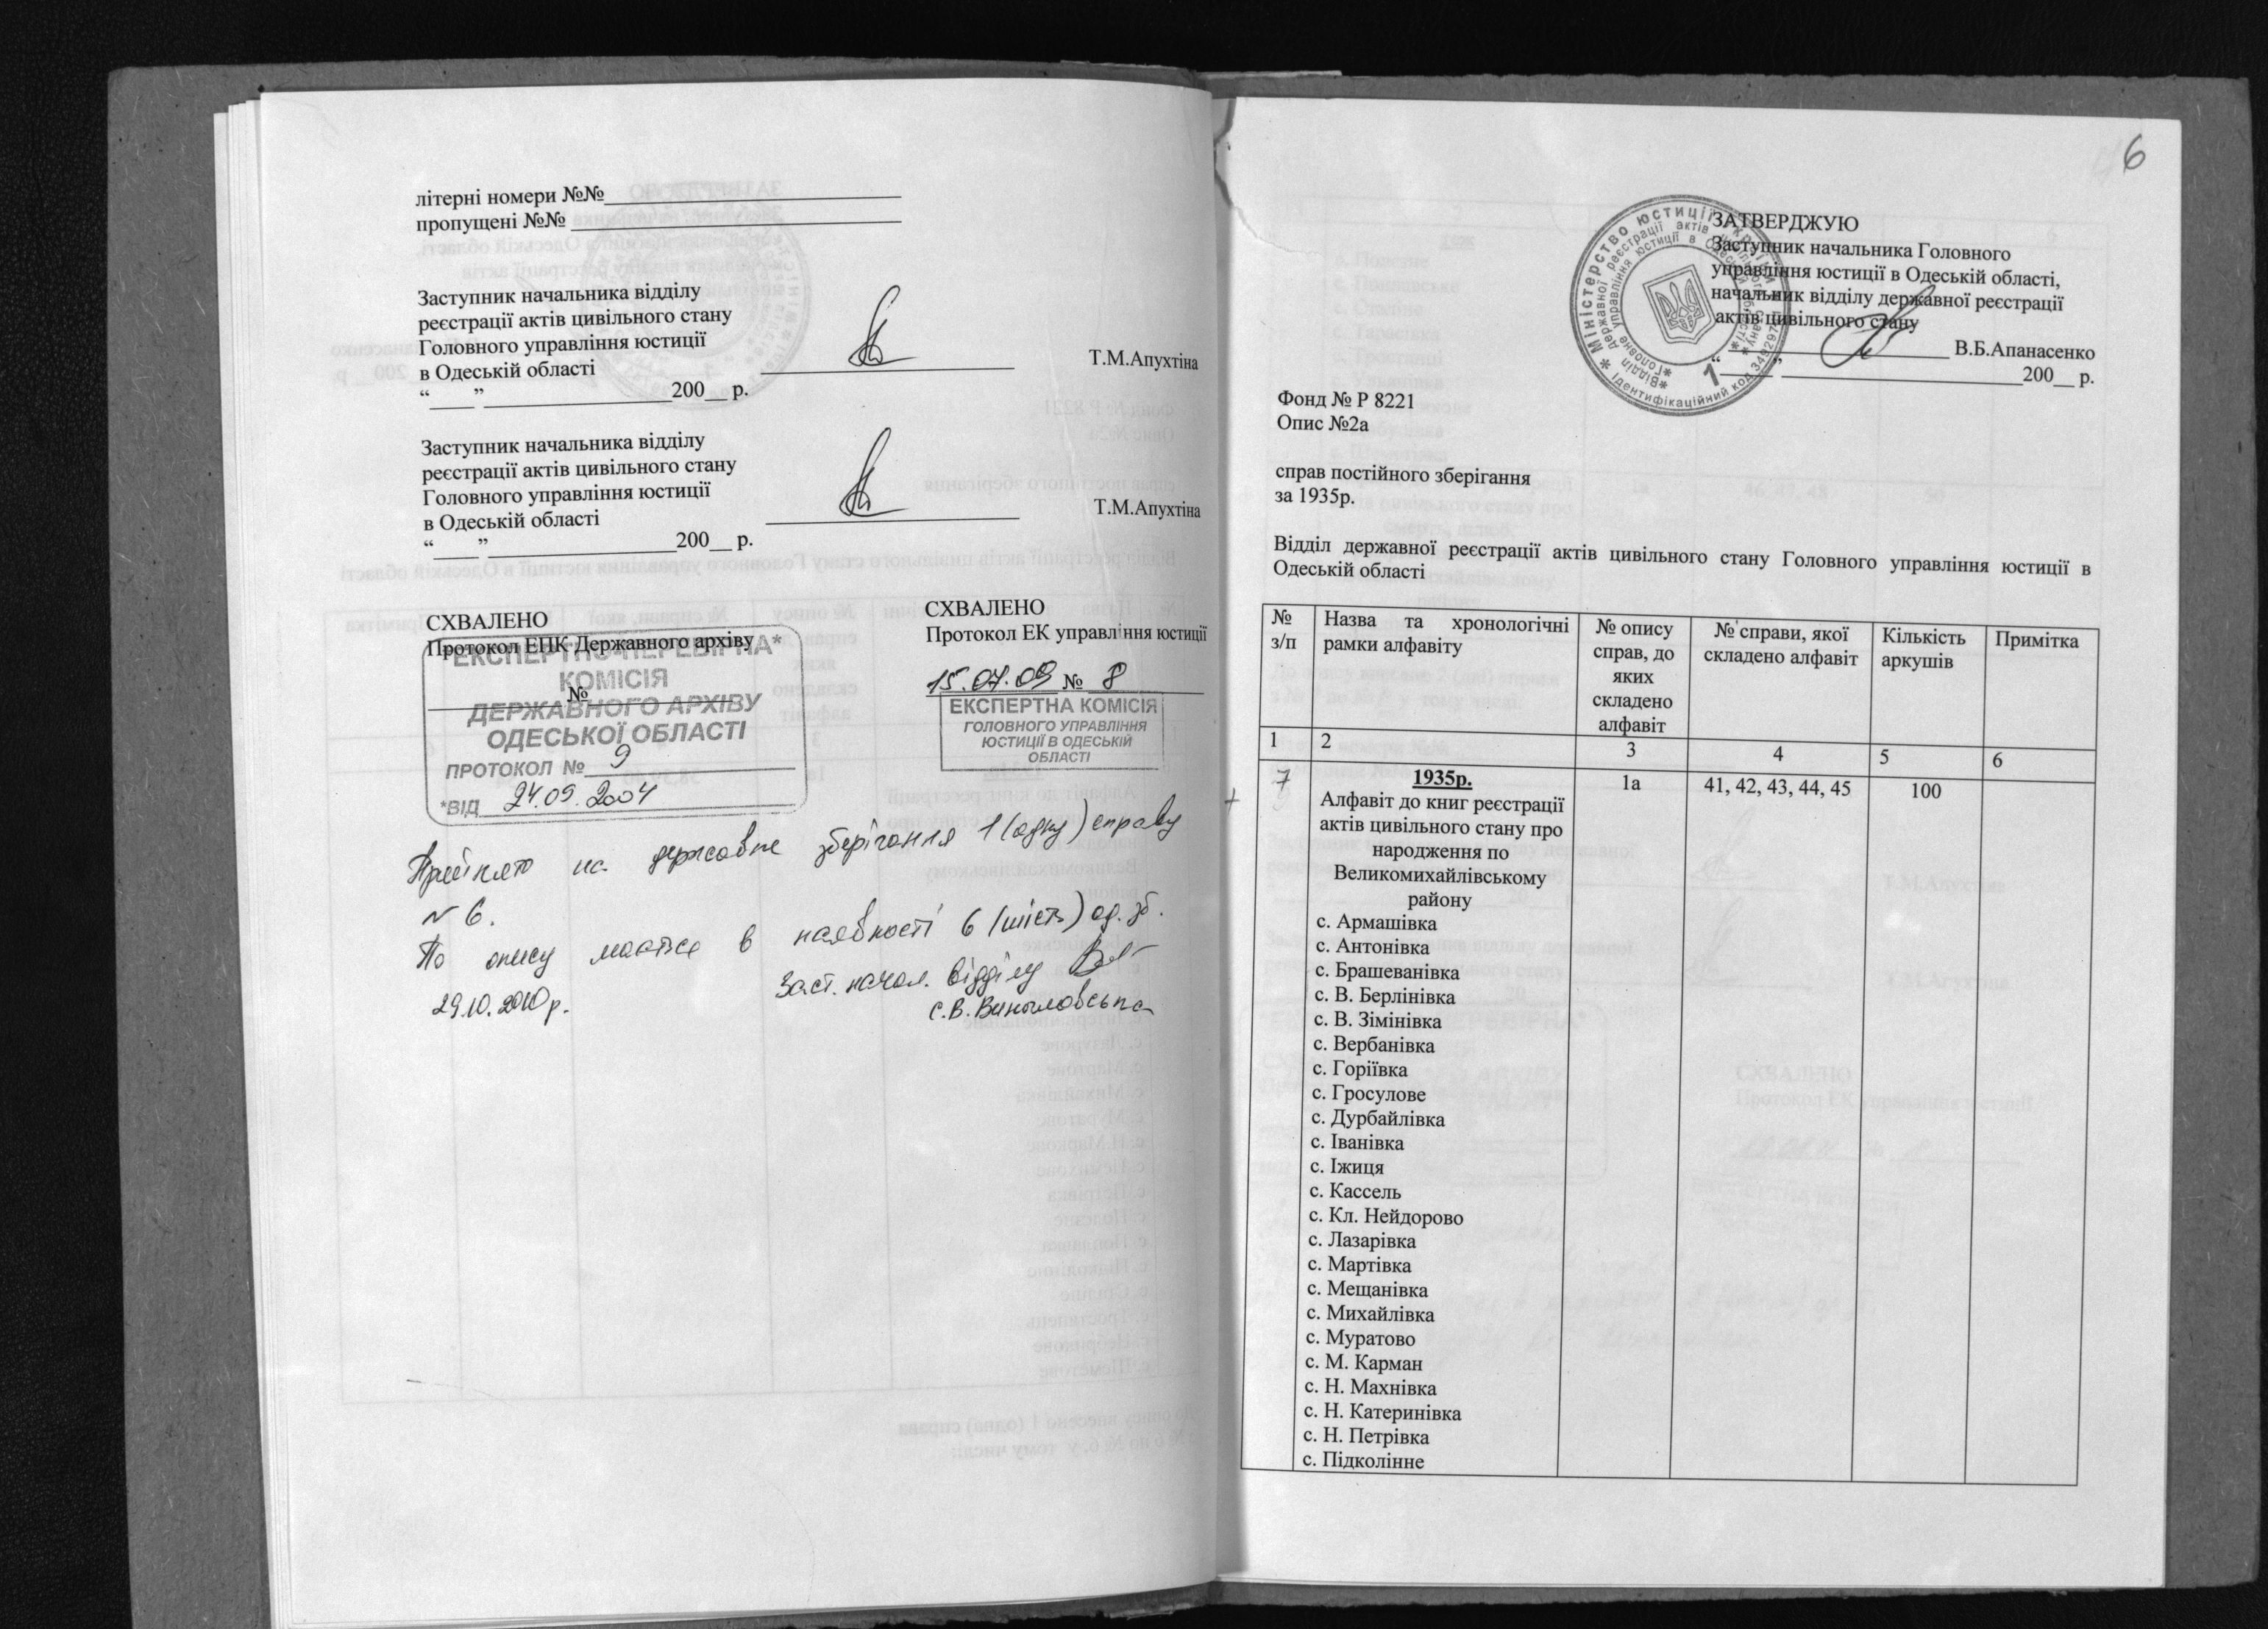 літерні номери №№
пропущені №№
Заступник начальника відділу
реєстрації актів цивільного стану
Головного управління юстиції
в Одеській області
Т.М.Апухтіна
“____” 200__ р.
Заступник начальника відділу
реєстрації актів цивільного стану
Головного управління юстиції
в Одеській області
Т.М.Апухтіна
“____” 200__ р.
СХВАЛЕНО
Протокол ЕПК Державного архіву
№
*ЕКСПЕРТНО-ПЕРЕВІРНА*
КОМІСІЯ
ДЕРЖАВНОГО АРХІВУ
ОДЕСЬКОЇ ОБЛАСТІ
ПРОТОКОЛ № 9
*ВІД 24.09.2004
СХВАЛЕНО
Протокол ЕК управління юстиції
15.07.09 № 8
ЕКСПЕРТНА КОМІСІЯ
ГОЛОВНОГО УПРАВЛІННЯ
ЮСТИЦІЇ В ОДЕСЬКІЙ
ОБЛАСТІ
Прийнято на державне зберігання 1 (одну) справу
№ 6.
По опису мається в наявності 6 (шість) од. зб.
29.10.2010 р. Заст. начал. відділу
С.В.
6
ЗАТВЕРДЖУЮ
Заступник начальника Головного
управління юстиції в Одеській області,
начальник відділу державної реєстрації
актів цивільного стану
В.Б.Апанасенко
“____” 200__ р.
* Міністерство юстиції України * Ідентифікаційний код
*Відділ державної реєстрації актів цивільного стану*
*Головне управління юстиції в Одеській області*
1
Фонд № Р 8221
Опис №2а
справ постійного зберігання
за 1935р.
Відділ державної реєстрації актів цивільного стану Головного управління юстиції в
Одеській області
№ з/п | Назва та хронологічні рамки алфавіту | № опису справ, до яких складено алфавіт | № справи, якої складено алфавіт | Кількість аркушів | Примітка
1 | 2 | 3 | 4 | 5 | 6
7 | 1935р. | 1а | 41, 42, 43, 44, 45 | 100
Алфавіт до книг реєстрації
актів цивільного стану про
народження по
Великомихайлівському
району
с. Армашівка
с. Антонівка
с. Брашеванівка
с. В. Берлінівка
с. В. Зімінівка
с. Вербанівка
с. Горіївка
с. Гросулове
с. Дурбайлівка
с. Іванівка
с. Іжиця
с. Кассель
с. Кл. Нейдорово
с. Лазарівка
с. Мартівка
с. Мещанівка
с. Михайлівка
с. Муратово
с. М. Карман
с. Н. Махнівка
с. Н. Катеринівка
с. Н. Петрівка
с. Підколінне